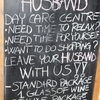 HUSBAND
DAY CARE CENTRE
• NEED TIME TO RELAX?
• NEED TIME FOR YOURSELF?
• WANT TO GO SHOPPING?
LEAVE YOUR HUSBAND
WITH US
- STANDARD PACKAGE
1 GLASS OF WINE
PACKAGE